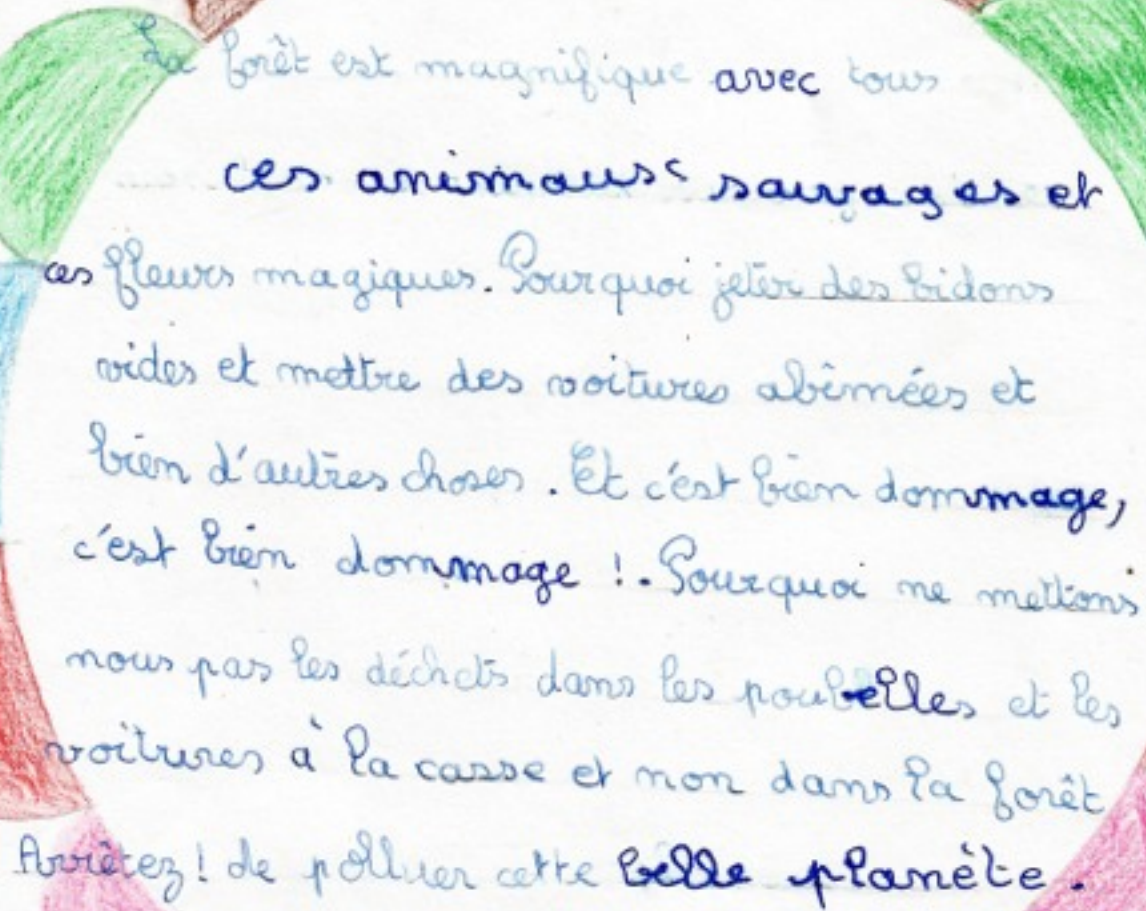 La forêt est magnifique avec tous
ces animaux sauvages et
ces fleurs magiques. Pourquoi jeter des bidons
vides et mettre des voitures abîmées et
bien d'autres choses. Et c'est bien dommage,
c'est bien dommage !. Pourquoi ne mettons
nous pas les déchets dans les poubelles et les
voitures à la casse et non dans la forêt
Arrêtez! de polluer cette belle planète.